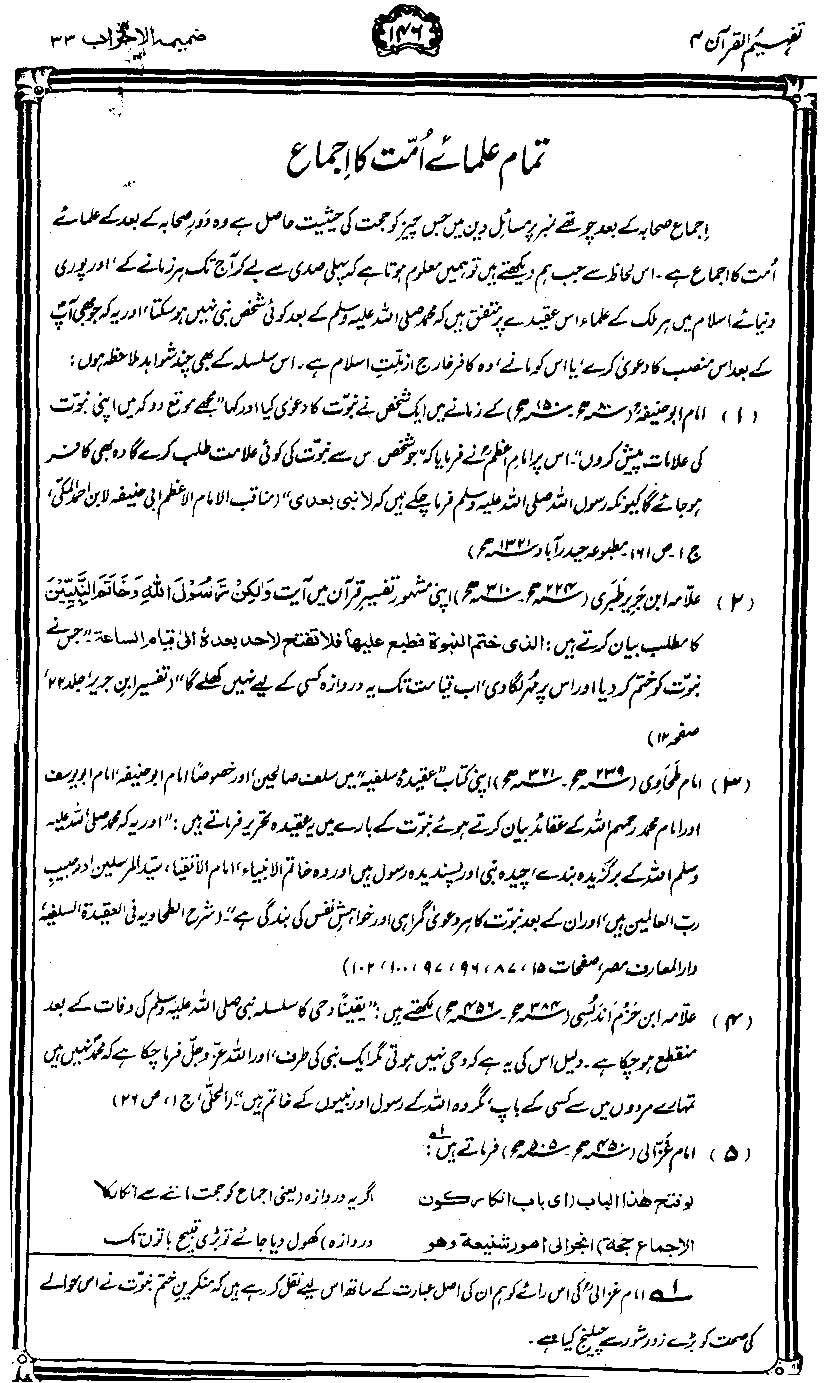 تفہیم القرآن ۴
۱۴۶
ضمیمہ الاحزاب ۳۳
تمام علمائے اُمّت کا اِجماع
اِجماع صحابہ کے بعد چوتھے نمبر پر مسائل دین میں جس چیز کو حجت کی حیثیت حاصل ہے وہ دَورِ صحابہ کے بعد کے علمائے
اُمت کا اجماع ہے۔ اس لحاظ سے جب ہم دیکھتے ہیں تو ہمیں معلوم ہوتا ہے کہ پہلی صدی سے لے کر آج تک ہر زمانے کے، اور پوری
دنیائے اسلام میں ہر ملک کے علماء اس عقیدے پر متفق ہیں کہ محمد صلی اللہ علیہ وسلم کے بعد کوئی شخص نبی نہیں ہو سکتا، اور یہ کہ جو بھی آپؐ
کے بعد اس منصب کا دعویٰ کرے، یا اس کو مانے، وہ کافر خارج از ملّتِ اسلام ہے۔ اس سلسلہ کے بھی چند شواہد ملاحظہ ہوں:
(۱) امام ابو حنیفہؒ (۸۰ھ۔۱۵۰ھ) کے زمانے میں ایک شخص نے نبوّت کا دعویٰ کیا اور کہا ”مجھے موقع دو کہ میں اپنی نبوّت
کی علامات پیش کروں“۔ اس پر امام اعظمؒ نے فرمایا کہ ”جو شخص اس سے نبوّت کی کوئی علامت طلب کرے گا وہ بھی کافر
ہو جائے گا کیونکہ رسول اللہ صلی اللہ علیہ وسلم فرما چکے ہیں کہ لا نبی بعدی“ (مناقب الامام الاعظم ابی حنیفہ لابن احمد المکی،
ج ۱۔ ص ۱۶۱، مطبوعہ حیدرآباد ۱۳۲۱ھ)
(۲) علّامہ ابن جریر طَبَری (۲۲۴ھ۔۳۱۰ھ) اپنی مشہور تفسیر قرآن میں آیت وَلٰکِنْ رَّسُوْلَ اللّٰہِ وَخَاتَمَ النَّبِیّٖنَ
کا مطلب بیان کرتے ہیں: الذی ختم النبوۃ فطبع علیہا فلا تفتح لاحد بعدہٗ الیٰ قیام الساعۃ۔ ”جس نے
نبوّت کو ختم کر دیا اور اس پر مُہر لگا دی، اب قیامت تک یہ دروازہ کسی کے لیے نہیں کھلے گا“ (تفسیر ابن جریر، جلد ۲۲،
صفحہ ۱۲)
(۳) امام طَحَاوِی (۲۳۹ھ۔۳۲۱ھ) اپنی کتاب ”عقیدۂ سلفیہ“ میں سلف صالحین، اور خصوصاً امام ابو حنیفہ، امام ابو یوسف
اور امام محمد رحمہم اللہ کے عقائد بیان کرتے ہوئے نبوّت کے بارے میں یہ عقیدہ تحریر فرماتے ہیں: ”اور یہ کہ محمد صلی اللہ علیہ
وسلم اللہ کے برگزیدہ بندے، چیدہ نبی اور پسندیدہ رسول ہیں اور وہ خاتم الانبیاء، امام الاتقیاء، سیّد المرسلین اور حبیبِ
ربّ العالمین ہیں، اور ان کے بعد نبوّت کا ہر دعویٰ گمراہی اور خواہشِ نفس کی بندگی ہے“۔ (شرح الطحاویہ فی العقیدۃ السلفیہ،
دار المعارف مصر، صفحات ۱۵، ۸۷، ۹۶، ۹۷، ۱۰۰، ۱۰۲)
(۴) علّامہ ابن حَزْم اَندَلُسِی (۳۸۴ھ۔۴۵۶ھ) لکھتے ہیں: ”یقیناً وحی کا سلسلہ نبی صلی اللہ علیہ وسلم کی وفات کے بعد
منقطع ہو چکا ہے۔ دلیل اس کی یہ ہے کہ وحی نہیں ہوتی مگر ایک نبی کی طرف، اور اللہ عزّ و جلّ فرما چکا ہے کہ محمدؐ نہیں ہیں
تمہارے مردوں میں سے کسی کے باپ، مگر وہ اللہ کے رسول اور نبیوں کے خاتم ہیں“۔ (المحلّٰی، ج ۱، ص ۲۶)
(۵) امام غزالی (۴۵۰ھ۔۵۰۵ھ) فرماتے ہیں۱ٖ:
لو فتح ھذا الباب (ای باب انکار کون
الاجماع حجۃ) انجر الی امور شنیعۃ وھو
اگر یہ دروازہ (یعنی اجماع کو حجت ماننے سے انکار کا
دروازہ) کھول دیا جائے تو بڑی قبیح باتوں تک
۱ٖ امام غزالیؒ کی اس رائے کو ہم ان کی اصل عبارت کے ساتھ اس لیے نقل کر رہے ہیں کہ منکرینِ ختم نبوّت نے اس حوالے
کی صحت کو بڑے زور شور سے چیلنج کیا ہے۔